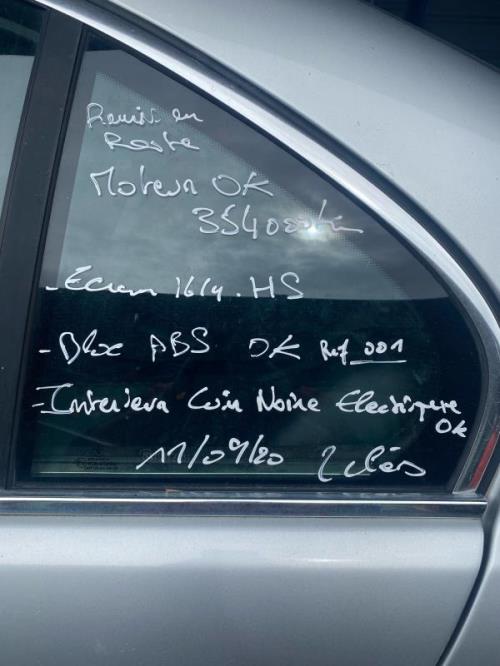 Remis en
Route
Moteur OK
354000 km
- Écran 16/9. HS
- Bloc ABS OK Ref 001
- Interieur Cuir Noire Electrique
OK
11/09/20 2 clés